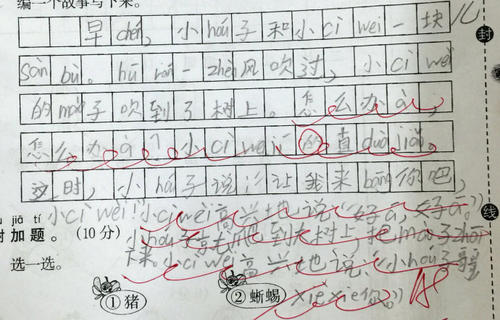 编一个故事写下来。
早chén，小hóu子和小cì wei一块儿
sàn bù。hū rán一zhèn风吹过，小cì wei
的mào子吹到了树上。怎么办à，
怎么办à？小cì wei 的直duò jiǎo。
这时，小hóu子说：“让我来bāng你吧，
小cì wei！”小cì wei高兴地说“好á，好á。”
附加题。（10分）小hóu子爬到大树上，把mào子
选一选。下来。小cì wei高兴地说：“小hóu子
①猪 ②蜥蜴 xiè xie你。”
封
线